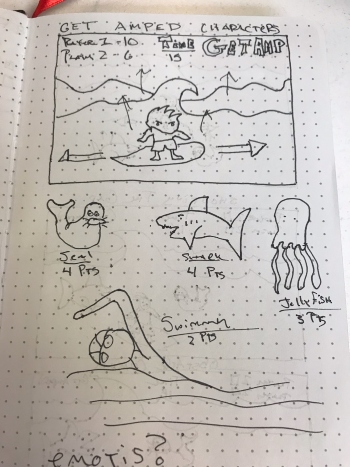 GET AMPED CHARACTERS
Player 1 - 10 TIME GET AMP
Player 2 - 6 15
Seal
4 Pts
Shark
4 Pts
Jellyfish
3 Pts
Swimmer
2 Pts
EMOTIS?